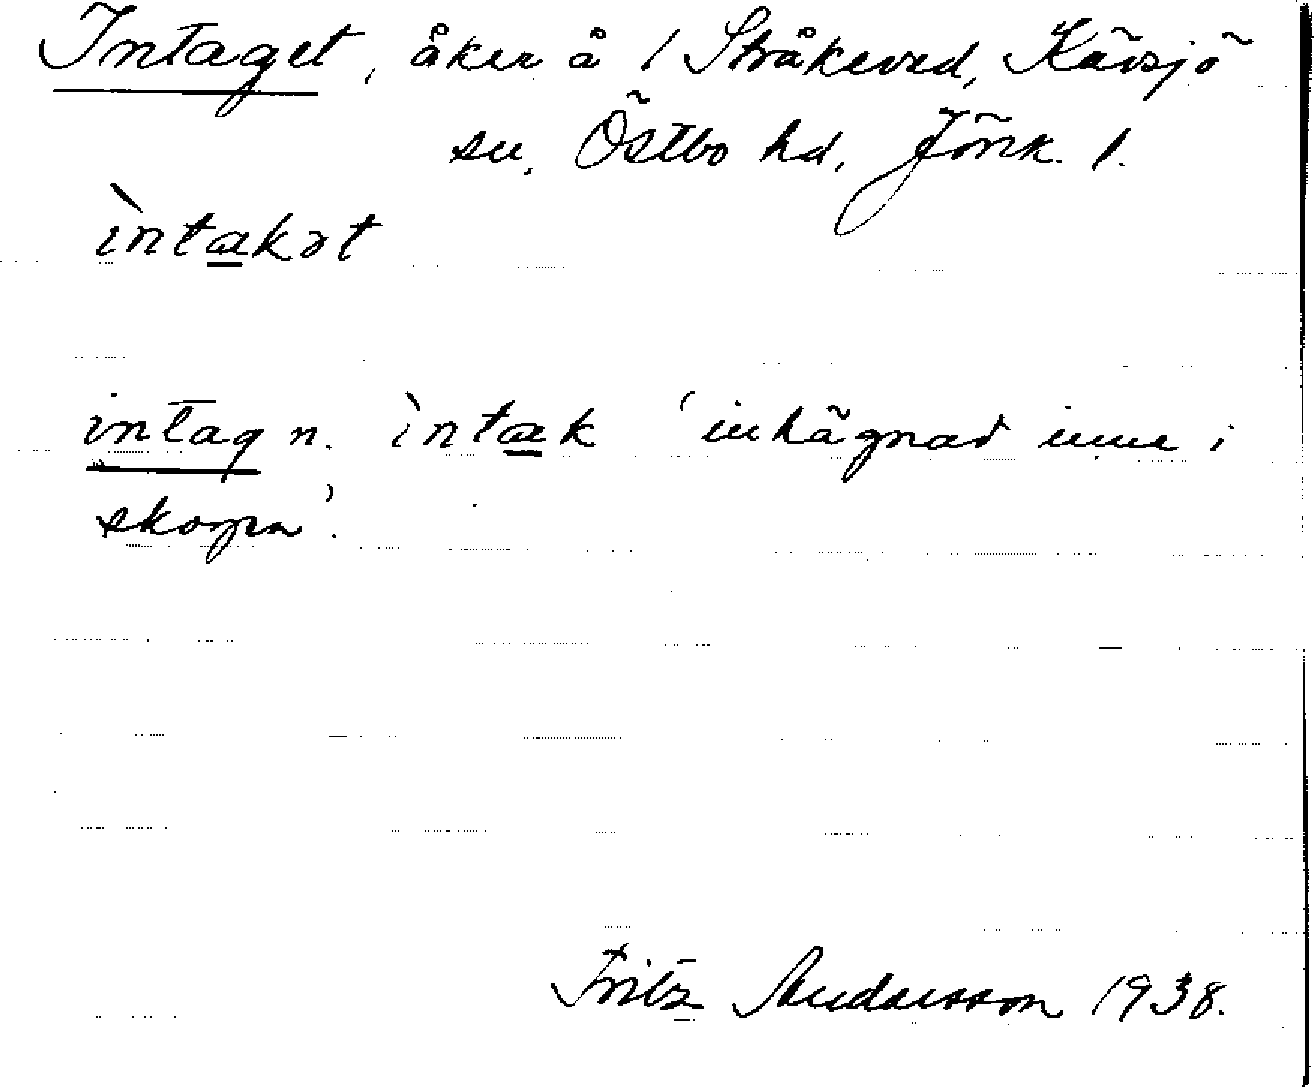 Intaget, åker å 1 Stråkeved, Kävsjö
sn, Östbo hd, Jönk. l.
ìntakət
intag n. ìntak 'inhägnad inne i
skogen'.
Fritz Andersson 1938.